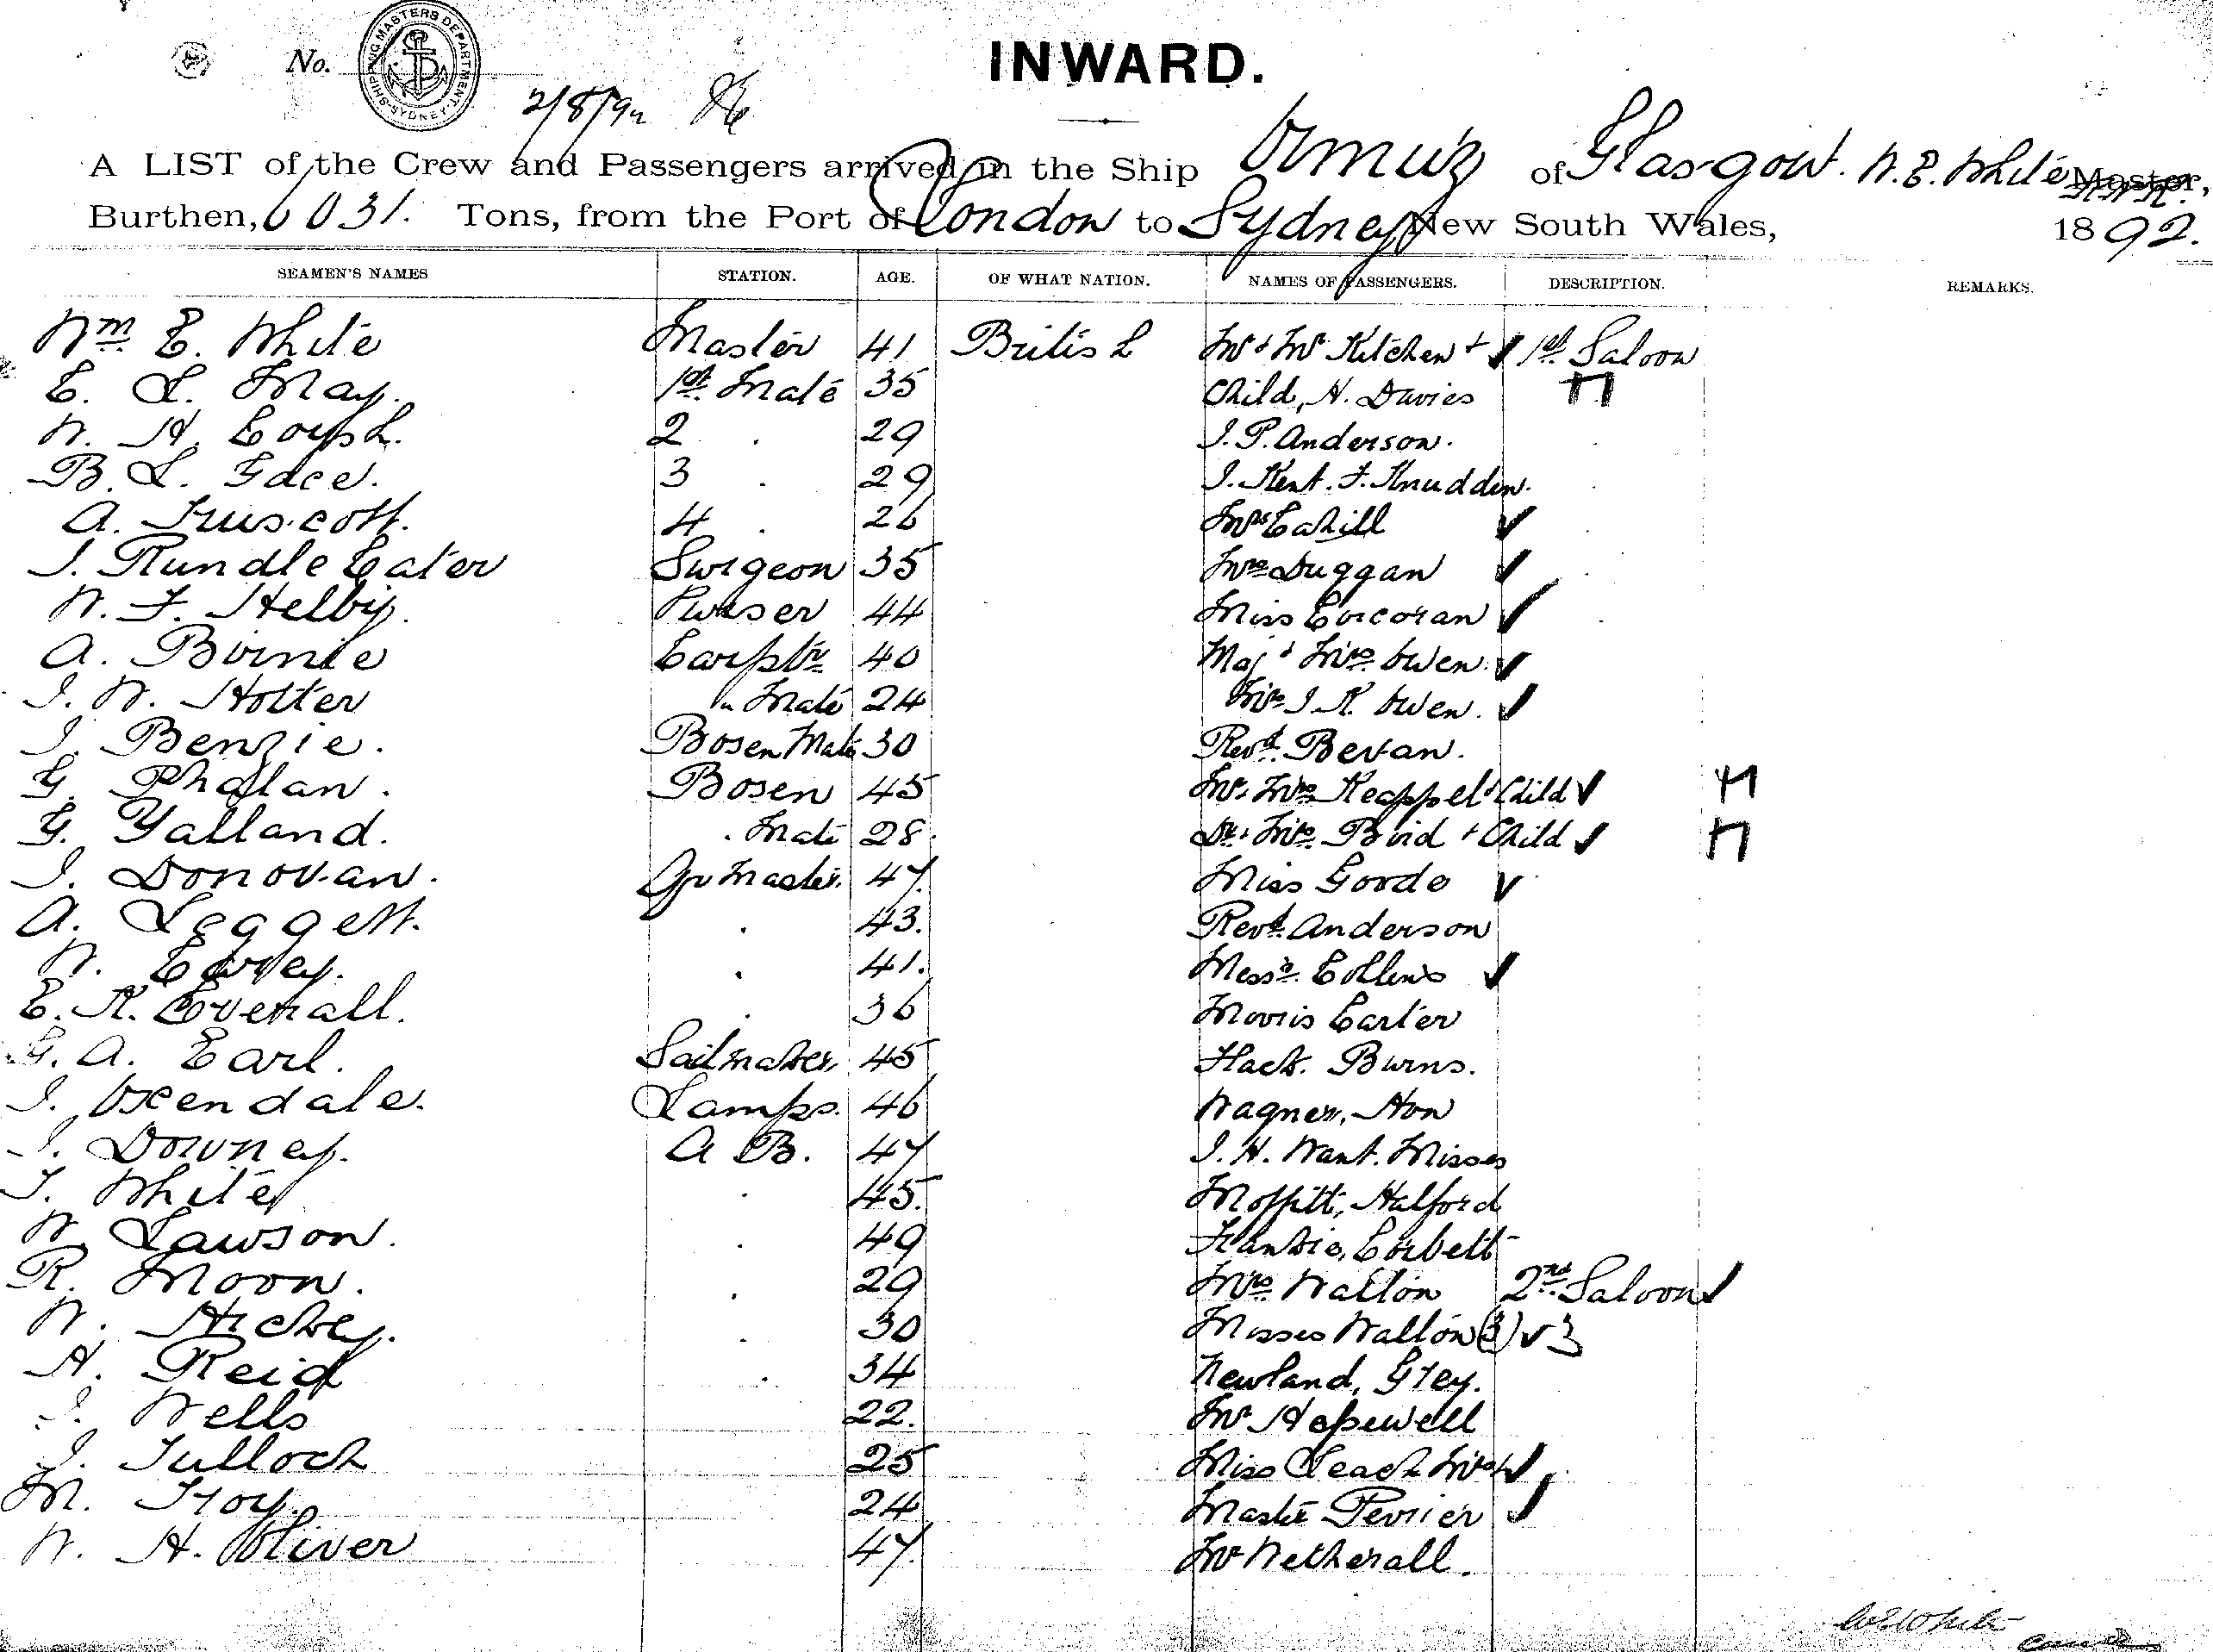 INWARD.
No.
SHIPPING MASTERS DEPARTMENT SYDNEY
2/8/92
A LIST of the Crew and Passengers arrived in the Ship Ormuz of Glasgow. W.E. White Master,
Burthen, 6031. Tons, from the Port of London to Sydney New South Wales, 1892.
SEAMEN'S NAMES STATION. AGE. OF WHAT NATION. NAMES OF PASSENGERS. DESCRIPTION. REMARKS.
Wm E. White Master 41 British Mr & Mrs Kitchen + 1st Saloon
E. L. May. 1st Mate 35 Child, H. Davies
W. H. 2 . 29 J. P. Anderson.
B. L. 3 . 29 J. Kent. F. Knudden.
A. Truscott. 4 . 26 Mrs Cahill
J. Rundle Cater Surgeon 35 Mrs Duggan
W. F. Helby. Purser 44 Miss Corcoran
A. Birnie Carpntr 40 Maj & Mrs Owen
J. W. Hotter " Mate 24 Mrs J. R. Owen.
J. Benzie. Bosen Mate 30 Revd. Bevan.
G. Phalan. Bosen 45 Mr. Mrs Keappel & Child
G. Yalland. . Mate 28. Dr. & Mrs Bird + Child
J. Donovan. Qr Master. 47. Miss Goode
A. Leggett. . 43. Revd. Anderson
W. . 41. Messrs. Collins
E. R. Coverall. . 36 Morris Carter
G. A. Earl. Sailmaker 45 Hack. Burns.
J. Oxendale. Lamps. 46 Wagner, Hon
J. Downey. A B. 47 J. H. Want. Misses
T. White . 45. Moffitt, Halford
W. Lawson. . 49 Corbett
R. Moon. . 29 Mrs Walton 2nd Saloon
W. Hickey. . 30 Misses Walton (3) 3
H. Reid . 34 Newland, Grey.
J. Wells 22. Mr Hopewell
J. Tulloch 25 Miss Leach
M. Troy. 24 Master Perrier
W. H. Oliver 47. Mr Netherall.
W E White